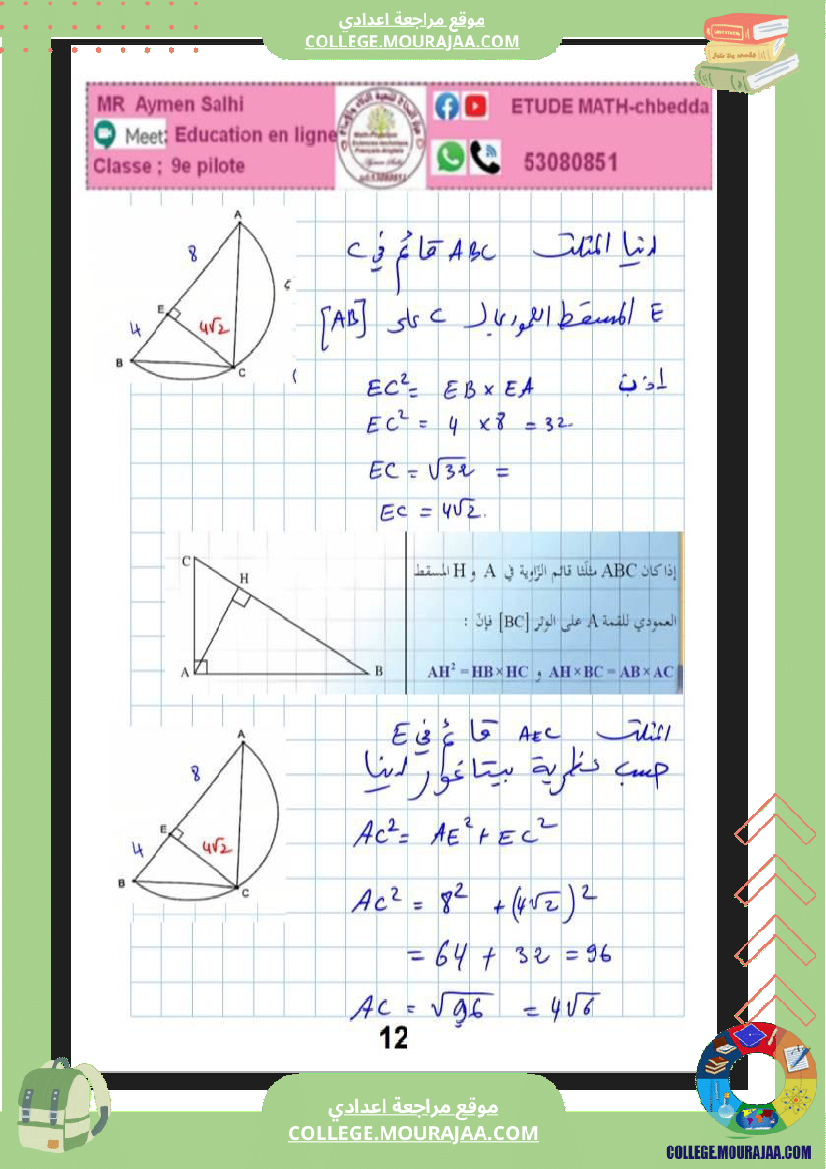 موقع مراجعة اعدادي
COLLEGE.MOURAJAA.COM
MR Aymen Salhi
Meet: Education en ligne
Classe ; 9e pilote
ETUDE MATH-chbedda
53080851
A
8
E
4
4√2
B
C
لدينا المثلث ABC قائم في C
E المسقط العمودي لـ C على [AB]
إذن
EC² = EB × EA
EC² = 4 × 8 = 32
EC = √32 =
EC = 4√2.
C
H
A
B
إذا كان ABC مثلّثا قائم الزّاوية في A و H المسقط
العمودي للقمة A على الوتر [BC] فإنّ :
AH² = HB × HC و AH × BC = AB × AC
A
8
E
4
4√2
B
C
المثلث AEC قائم في E
حسب نظرية بيتاغور لدينا
AC² = AE² + EC²
AC² = 8² + (4√2)²
= 64 + 32 = 96
AC = √96 = 4√6
12
موقع مراجعة اعدادي
COLLEGE.MOURAJAA.COM
COLLEGE.MOURAJAA.COM